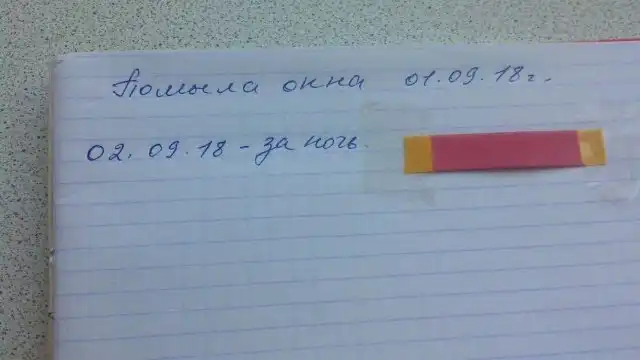 Помыла окна 01.09.18г.
02.09.18 - за ночь.